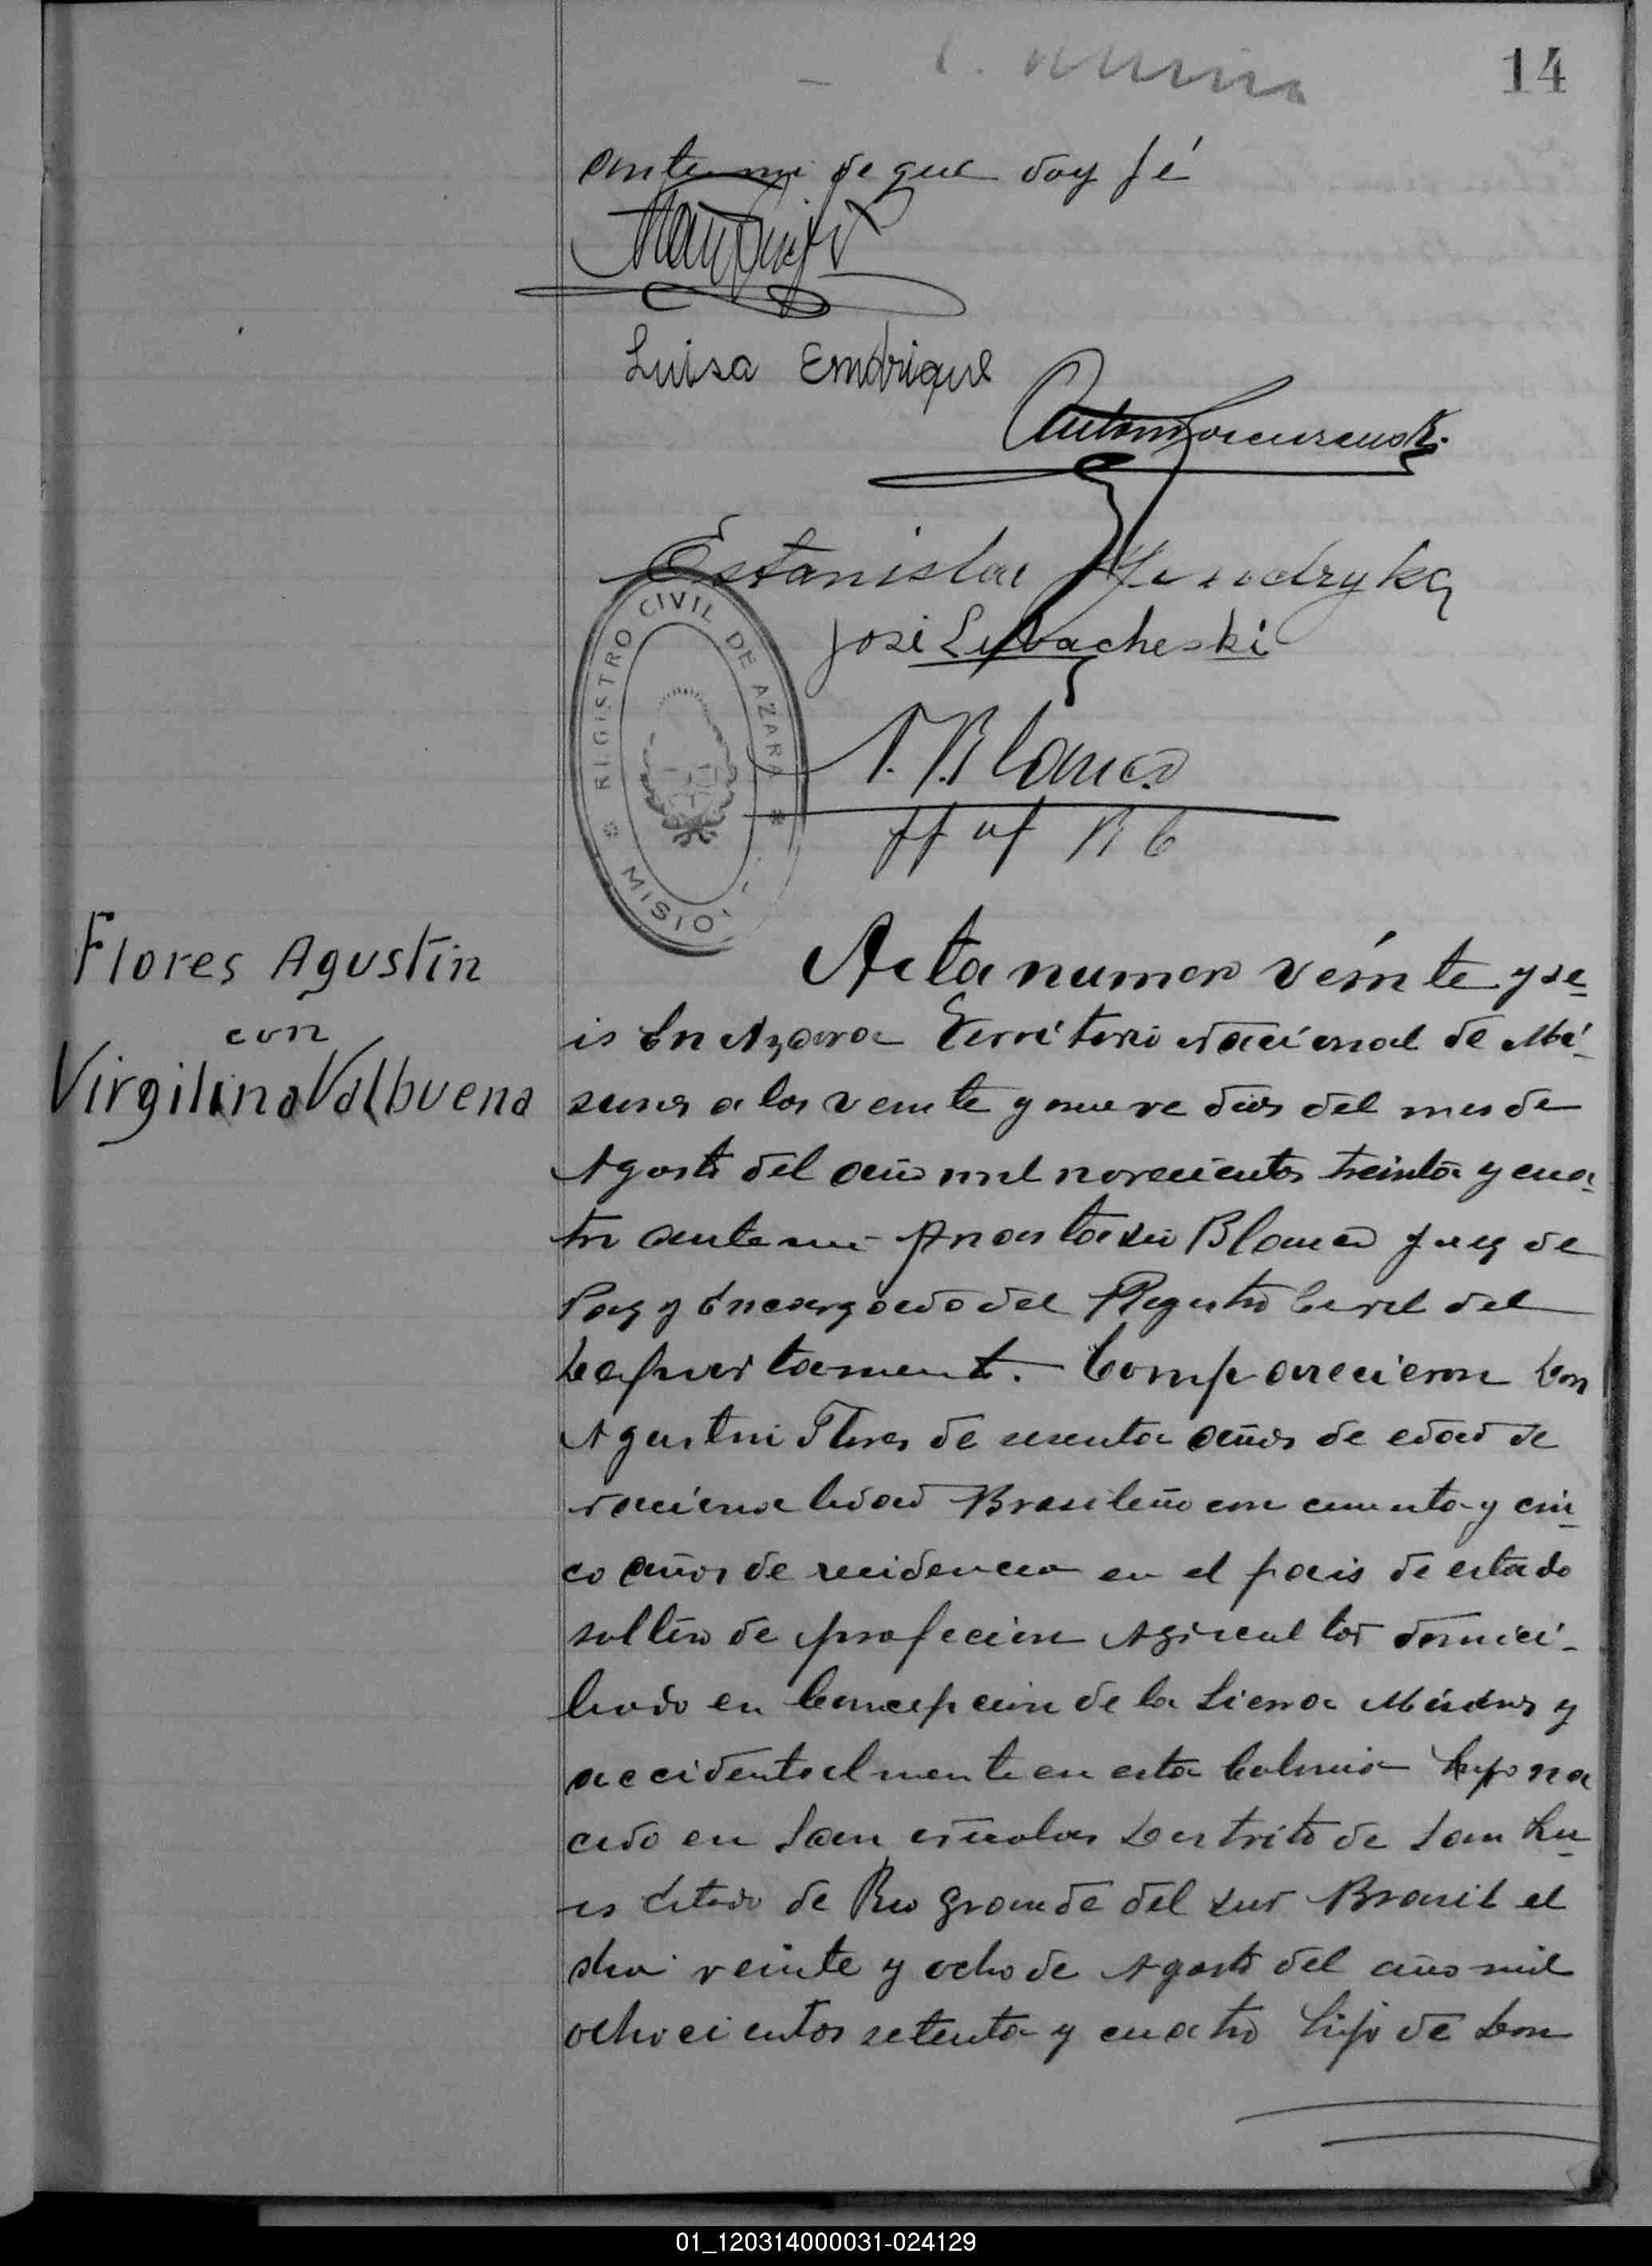 14
ante mi de que doy fé
Luisa Emdrique
Estanislao
José Lubacheski
A. Blanco
REGISTRO CIVIL DE AZARA
MISIO
Flores Agustin
con
Virgilina Valbuena
Acta numero veinte y se
is En Azara Territorio Nacional de Mi-
siones a los veinte y nueve dias del mes de
Agosto del año mil novecientos treinta y cua-
tro ante mi Anastasio Blanco Juez de
Paz y Encargado del Registro Civil del
Departamento. Comparecieron Don
Agustin Flores de sesenta años de edad de
nacionalidad Brasileño con cuarenta y cin
co años de recidencia en el pais de estado
soltero de profecion Agricultor domici-
liado en Concepcion de la Sierra Misiones y
accidentalmente en esta Colonia hijo na
cido en San Nicolas Destrito de San Lu
is Estado de Rio Grande del Sur Brasil el
dia veinte y ocho de Agosto del año mil
ochocientos setenta y cuatro hijo de Don
01_120314000031-024129